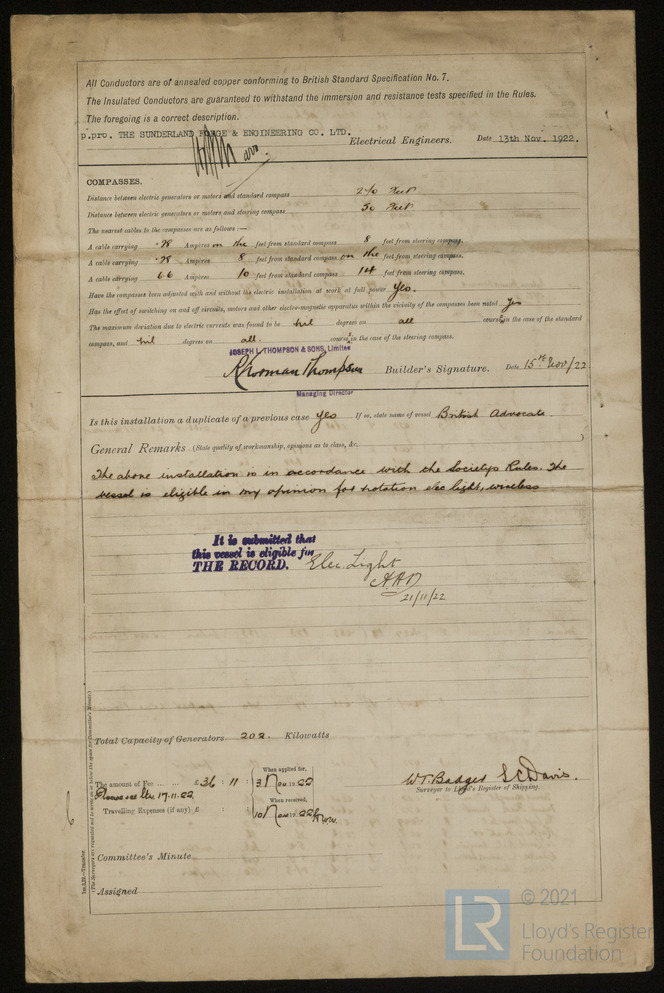 All Conductors are of annealed copper conforming to British Standard Specification No. 7.
The Insulated Conductors are guaranteed to withstand the immersion and resistance tests specified in the Rules.
The foregoing is a correct description.
p.pro. THE SUNDERLAND FORGE & ENGINEERING CO. LTD. Electrical Engineers. Date 13th Nov. 1922.
COMPASSES.
Distance between electric generators or motors and standard compass 240 feet
Distance between electric generators or motors and steering compass 30 feet
The nearest cables to the compasses are as follows :—
A cable carrying .28 Ampères on the feet from standard compass 8 feet from steering compass.
A cable carrying .28 Ampères 8 feet from standard compass on the feet from steering compass.
A cable carrying 6.6 Ampères 10 feet from standard compass 14 feet from steering compass.
Have the compasses been adjusted with and without the electric installation at work at full power Yes.
Has the effect of switching on and off circuits, motors and other electro-magnetic apparatus within the vicinity of the compasses been noted Yes
The maximum deviation due to electric currents was found to be nil degrees on all course in the case of the standard
compass, and nil degrees on all course in the case of the steering compass.
JOSEPH L. THOMPSON & SONS, Limited
R Norman Thompson Builder's Signature. Date 15th Nov/22
Managing Director
Is this installation a duplicate of a previous case Yes If so, state name of vessel British Advocate.
General Remarks (State quality of workmanship, opinions as to class, &c.)
The above installation is in accordance with the Society's Rules. The
vessel is eligible in my opinion for notation elec light, wireless
It is submitted that
this vessel is eligible for
THE RECORD. Elec. Light
21/11/22
Total Capacity of Generators 202 Kilowatts
The amount of Fee £36 : 11 : When applied for, 3 Nov. 1922
17.11.22
Travelling Expenses (if any) £ : : When received, 10 1922
W.T. Badger S.C. Davis.
Surveyor to Lloyd's Register of Shipping.
Committee's Minute
Assigned
1m.1.20—Transfer.
(The Surveyors are requested not to write on or below the space for Committee's Minute.)
LR
© 2021
Lloyd's Register
Foundation